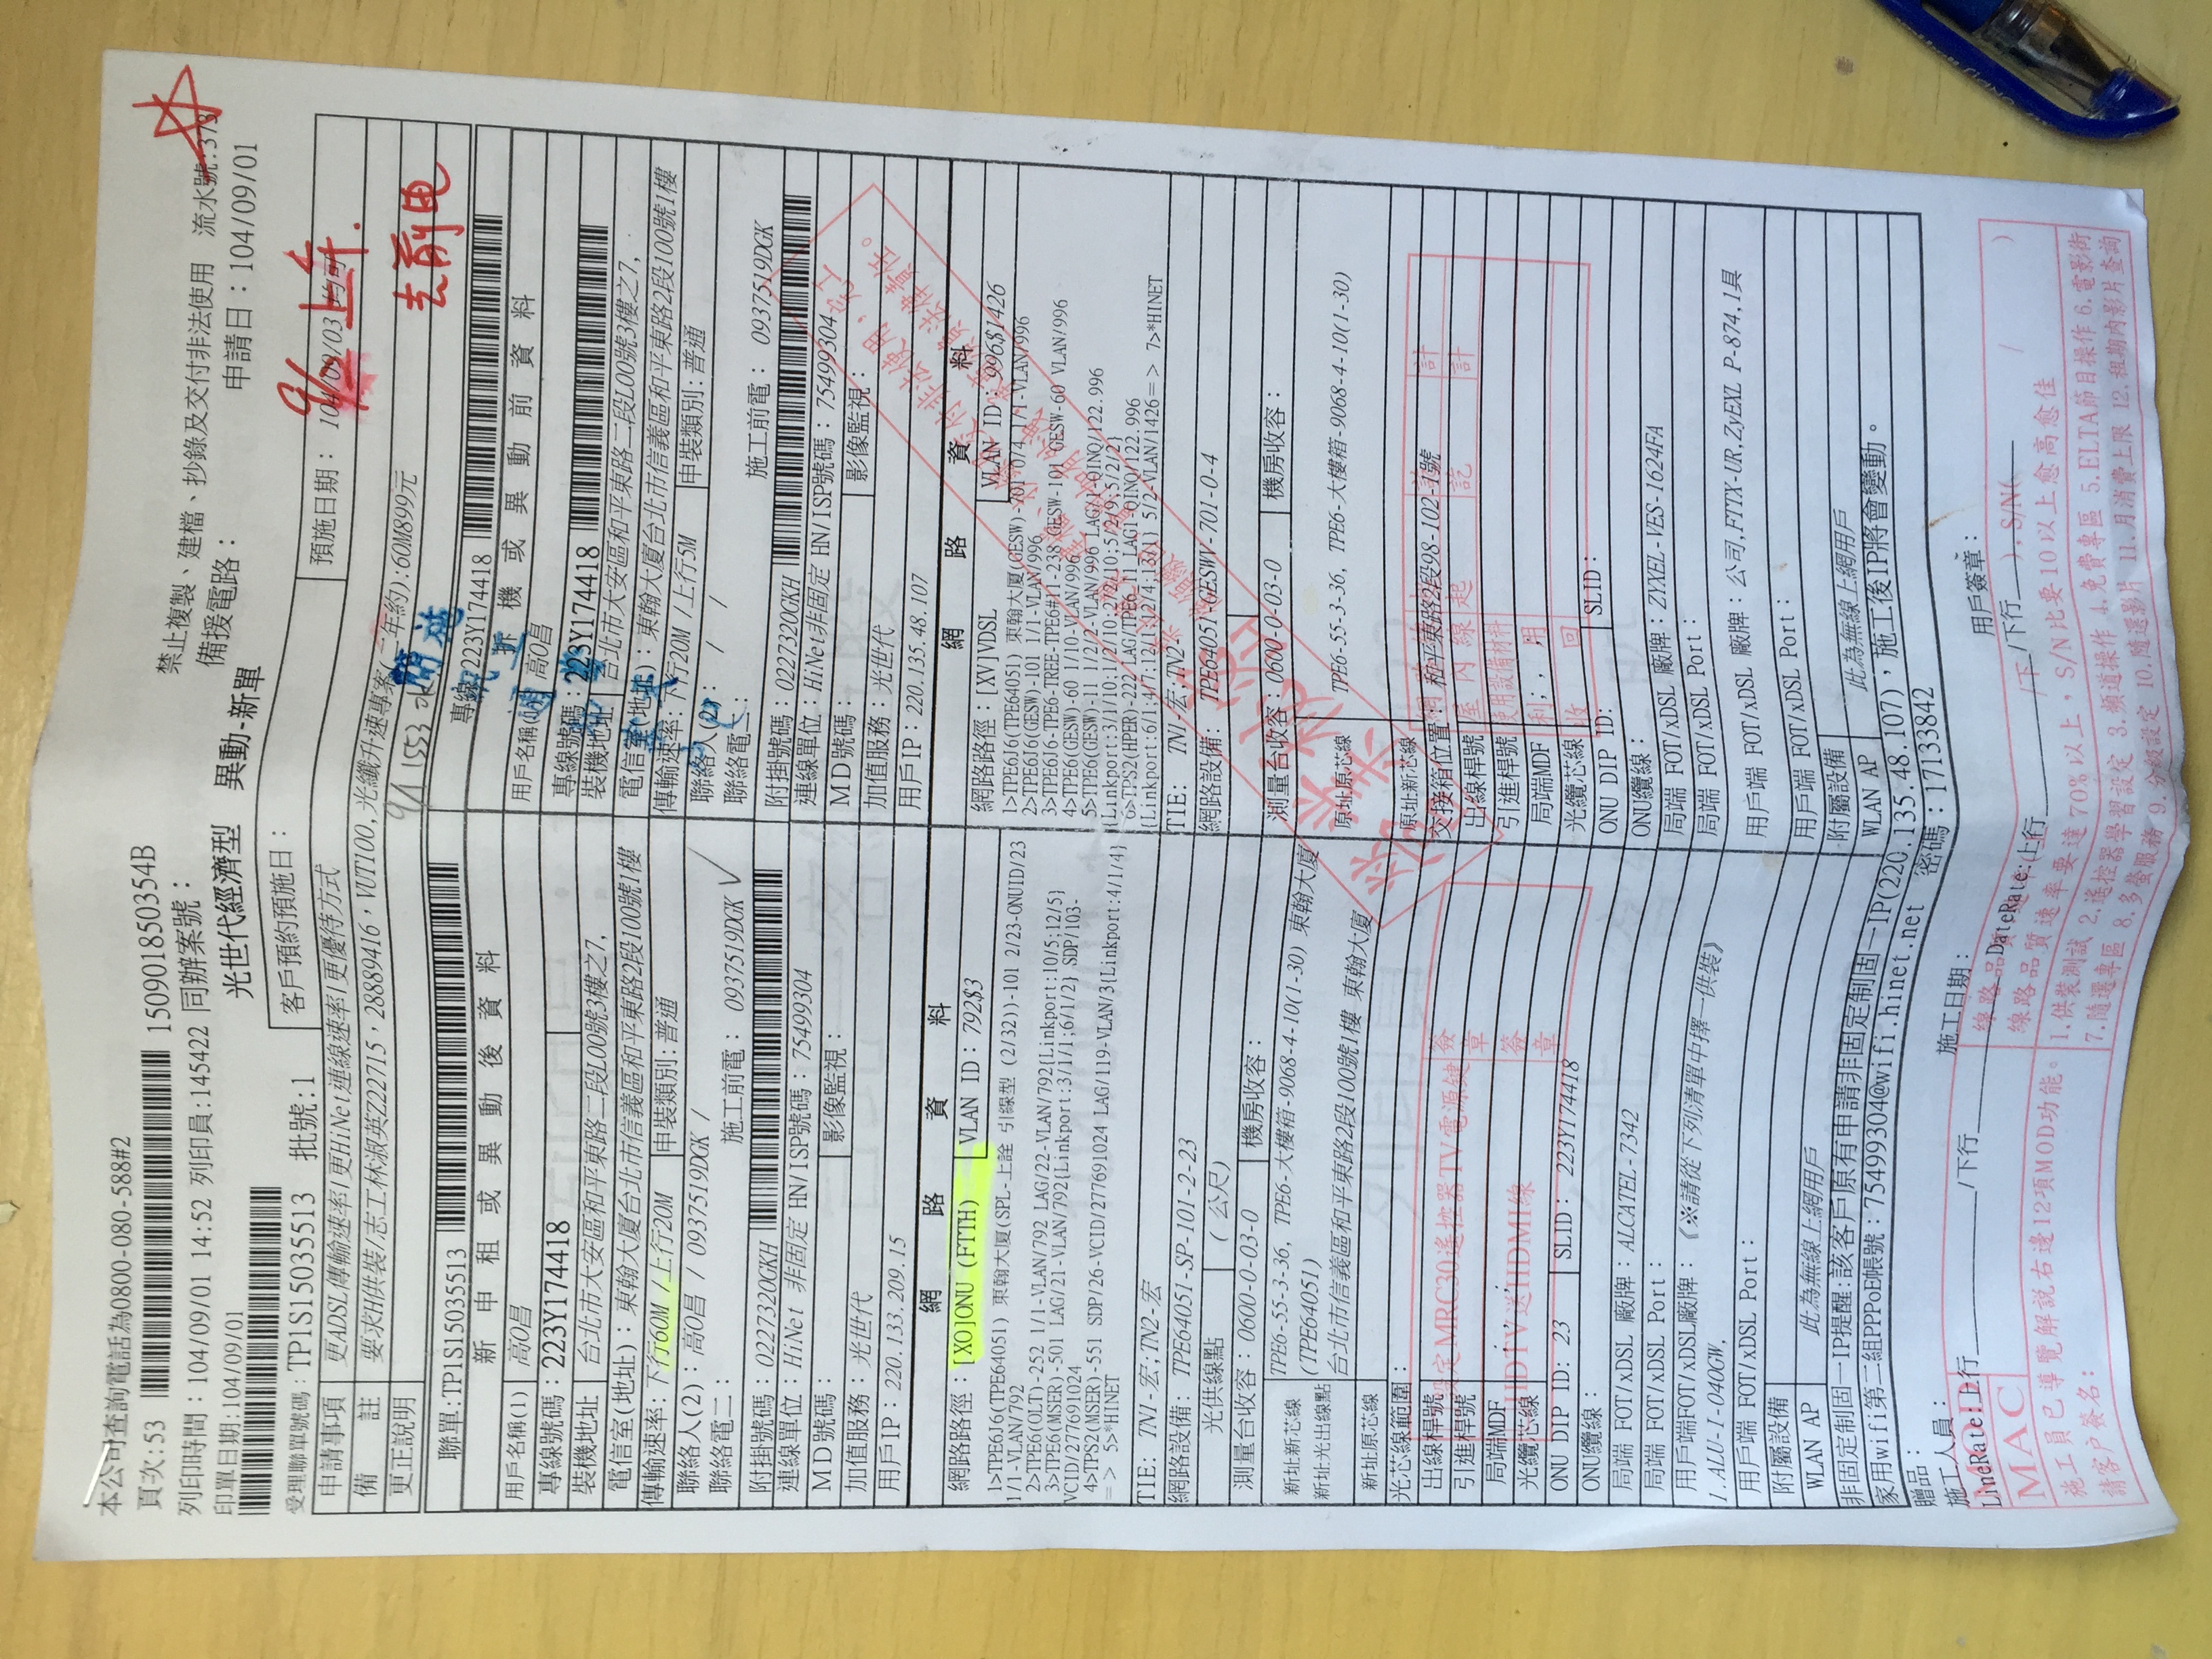 本公司查詢電話為0800-080-588#2
頁次:53 15090185035​4B
禁止複製、建檔、抄錄及交付非法使用 流水號:373
列印時間:104/09/01 14:52 列印員:145422 同辦案號:
備援電路:
申請日:104/09/01
印單日期:104/09/01
光世代經濟型 異動-新單
受理聯單號碼:TP1S115035513 批號:1
客戶預約預施日:
預施日期: 104/09/03
上午.
申請事項 更ADSL傳輸速率|更HiNet連線速率|更優待方式
備註 要求H供裝/志工林淑英Z22715,28889416,VUT100,光纖升速專案(二年約):60M899元
更正說明
9/1 1553
去前電
聯單:TP1S115035513
專線 223Y174418
新申租或異動後資料
拆機或異動前資料
用戶名稱(1) 高O昌
專線號碼:223Y174418
裝機地址 台北市大安區和平東路二段L00號3樓之7,
電信室(地址):東翰大廈台北市信義區和平東路2段100號1樓
傳輸速率:下行60M /上行20M 申裝類別:普通
聯絡人(2):高O昌 / 0937519DGK /
聯絡電二: 施工前電: 0937519DGK
附掛號碼:0227320GKH
連線單位:HiNet 非固定 HN/ISP號碼: 75499304
MD號碼: 影像監視:
加值服務:光世代
用戶IP:220.133.209.15
用戶名稱 高O昌
專線號碼:223Y174418
裝機地址 台北市大安區和平東路二段L00號3樓之7,
電信室(地址):東翰大廈台北市信義區和平東路2段100號1樓
傳輸速率:下行20M /上行5M 申裝類別:普通
聯絡人(2): / /
聯絡電二: 施工前電: 0937519DGK
附掛號碼:0227320GKH
連線單位:HiNet非固定 HN/ISP號碼: 75499304
MD號碼: 影像監視:
加值服務:光世代
用戶IP:220.135.48.107
網路資料
網路路徑:[XO]ONU (FTTH) VLAN ID: 792&3
1>TPE6J6(TPE64051) 東翰大廈(SPL-上詮 引線型 (2/32))-101 2/23-ONUID/23
1/1-VLAN/792
2>TPE6(OLT)-252 1/1-VLAN/792 LAG/22-VLAN/792{Linkport:10/5;12/5}
3>TPE6(MSER)-501 LAG/21-VLAN/792{Linkport:3/1/1;6/1/2} SDP/103-
VCID/277691024
4>TPS2(MSER)-551 SDP/26-VCID/277691024 LAG/119-VLAN/3{Linkport:4/1/4}
=> 5>*HINET
TIE: TN1-宏;TN2-宏
網路設備: TPE64051-SP-101-2-23
光供線點 (公尺)
測量台收容:0600-0-03-0 機房收容:
新址新芯線 TPE6-55-3-36, TPE6-大樓箱-9068-4-10(1-30) 東翰大廈
新址光出線點 (TPE64051)
台北市信義區和平東路2段100號1樓 東翰大廈
新址原芯線
光芯線範圍:
出線桿號
引進桿號
局端MDF
光纜芯線
ONU DIP ID: 23 SLID: 223Y174418
ONU纜線:
局端 FOT/xDSL 廠牌: ALCATEL-7342
局端 FOT/xDSL Port:
用戶端FOT/xDSL廠牌: 《※請從下列清單中擇一供裝》
1.ALU-I-040GW,
用戶端 FOT/xDSL Port:
附屬設備
WLAN AP 此為無線上網用戶
網路資料
網路路徑:[XV]VDSL VLAN ID: 996&1426
1>TPE6J6(TPE64051) 東翰大廈(GESW)-701 0/4 1/1-VLAN/996
2>TPE6J6(GESW)-101 1/1-VLAN/996
3>TPE6J6-TPE6-TREE-TPE6#11-238 GESW-101 GESW-60 VLAN/996
4>TPE6(GESW)-60 1/10-VLAN/996
5>TPE6(GESW)-11 1/2/2-VLAN/996 LAG1-QINQ/122.996
TIE: TN1-宏;TN2-
網路設備: TPE64051-GESWV-701-0-4
測量台收容:0600-0-03-0 機房收容:
原址原芯線 TPE6-55-3-36, TPE6-大樓箱-9068-4-10(1-30)
原址新芯線
交接箱位置: 和平東路2段98-102-1號
出線桿號
引進桿號
局端MDF
光纜芯線
ONU DIP ID: SLID:
ONU纜線:
局端 FOT/xDSL 廠牌: ZYXEL-VES-1624FA
局端 FOT/xDSL Port:
用戶端 FOT/xDSL 廠牌: 公司,FTTX-UR,ZyEXL P-874,1具
用戶端 FOT/xDSL Port:
附屬設備
WLAN AP 此為無線上網用戶
非固定制固一IP提醒:該客戶原有申請非固定制固一IP(220.135.48.107),施工後IP將會變動。
家用wifi第二組PPPoE帳號:75499304@wifi.hinet.net 密碼:17133842
贈品:
施工人員: 施工日期: 用戶簽章:
LineRate:上行 /下行 DateRate:上行 /下行 ),S/N( / )
MAC
線路品質速率要達70%以上,S/N比要10以上愈高愈佳
施工員已導覽解說右邊12項MOD功能。
請客戶簽名:
1.供裝測試 2.遙控器學習設定 3.頻道操作 4.免費專區 5.ELTA節目操作 6.電影術
7.隨選專區 8.多螢服務 9.分級設定 10.隨選影片 11.月消費上限 12.租期內影片查詢